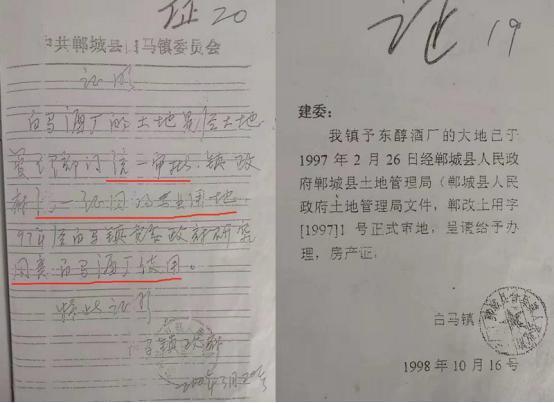 证 20
中共郸城县白马镇委员会
证明
白马酒厂的土地是经土地
管理部门统一审批、镇政
府统一征用的工业用地
97年经白马镇党委政府研究
同意白马酒厂使用。
特此证明
证 19
建委：
我镇予东醇酒厂的大地已于
1997年2月26日经郸城县人民政
府郸城县土地管理局（郸城县人民
政府土地管理局文件，郸改上用字
[1997]1号正式审地，呈请给予办
理，房产证。
白马镇
1998年10月16号